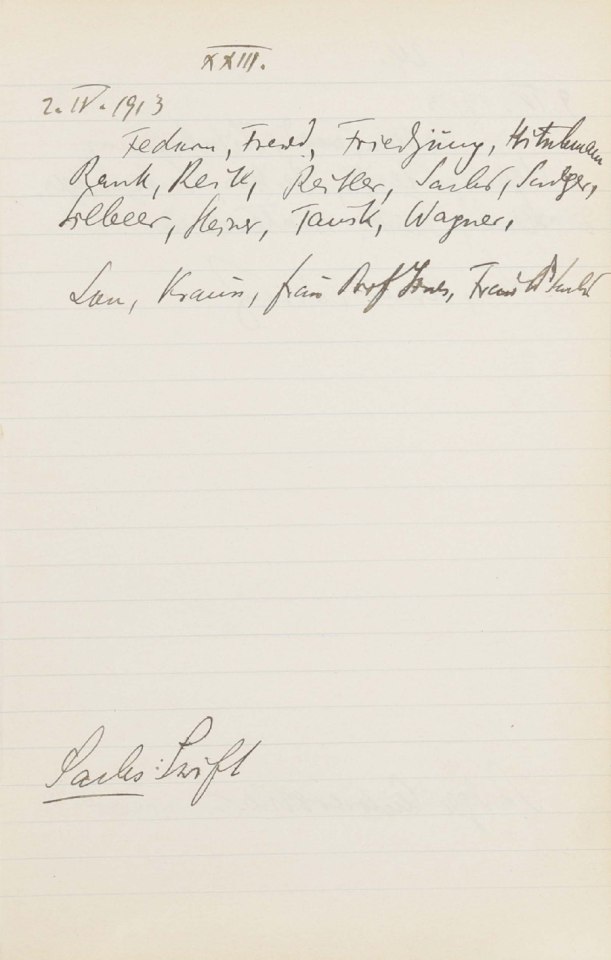 XXIII.
2. IV. 1913
Federn, Freud, Friedjung, Hitschmann
Rank, Reik, Reitler, Sachs, Sadger,
Silberer, Steiner, Tausk, Wagner,
Lou, Krauss, Frau Prof Jones, Frau Dr Sachs
Sachs: Swift